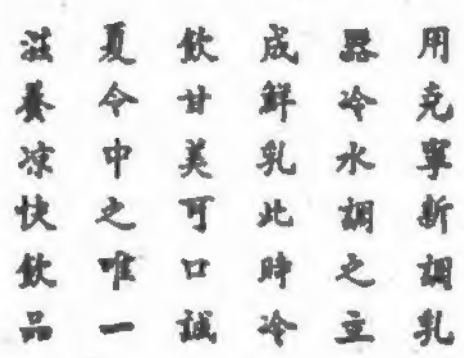 用克寧新調乳
器冷水調之立
成鮮乳此時冷
飲甘美可口誠
夏令中之唯一
滋養涼快飲品